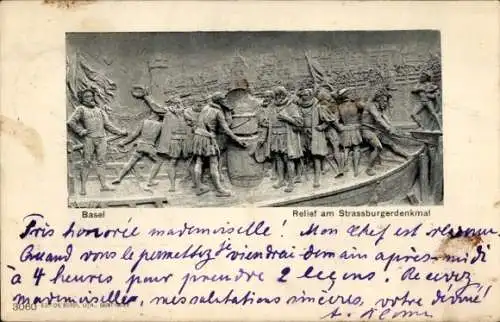 Basel
Relief am Strassburgerdenkmal
Très honorée mademoiselle! Mon chef est revenu.
Quand vous le permettez je viendrai demain après-midi
à 4 heures pour prendre 2 leçons. Recevez,
mademoiselle, mes salutations sincères, votre devoué
3060